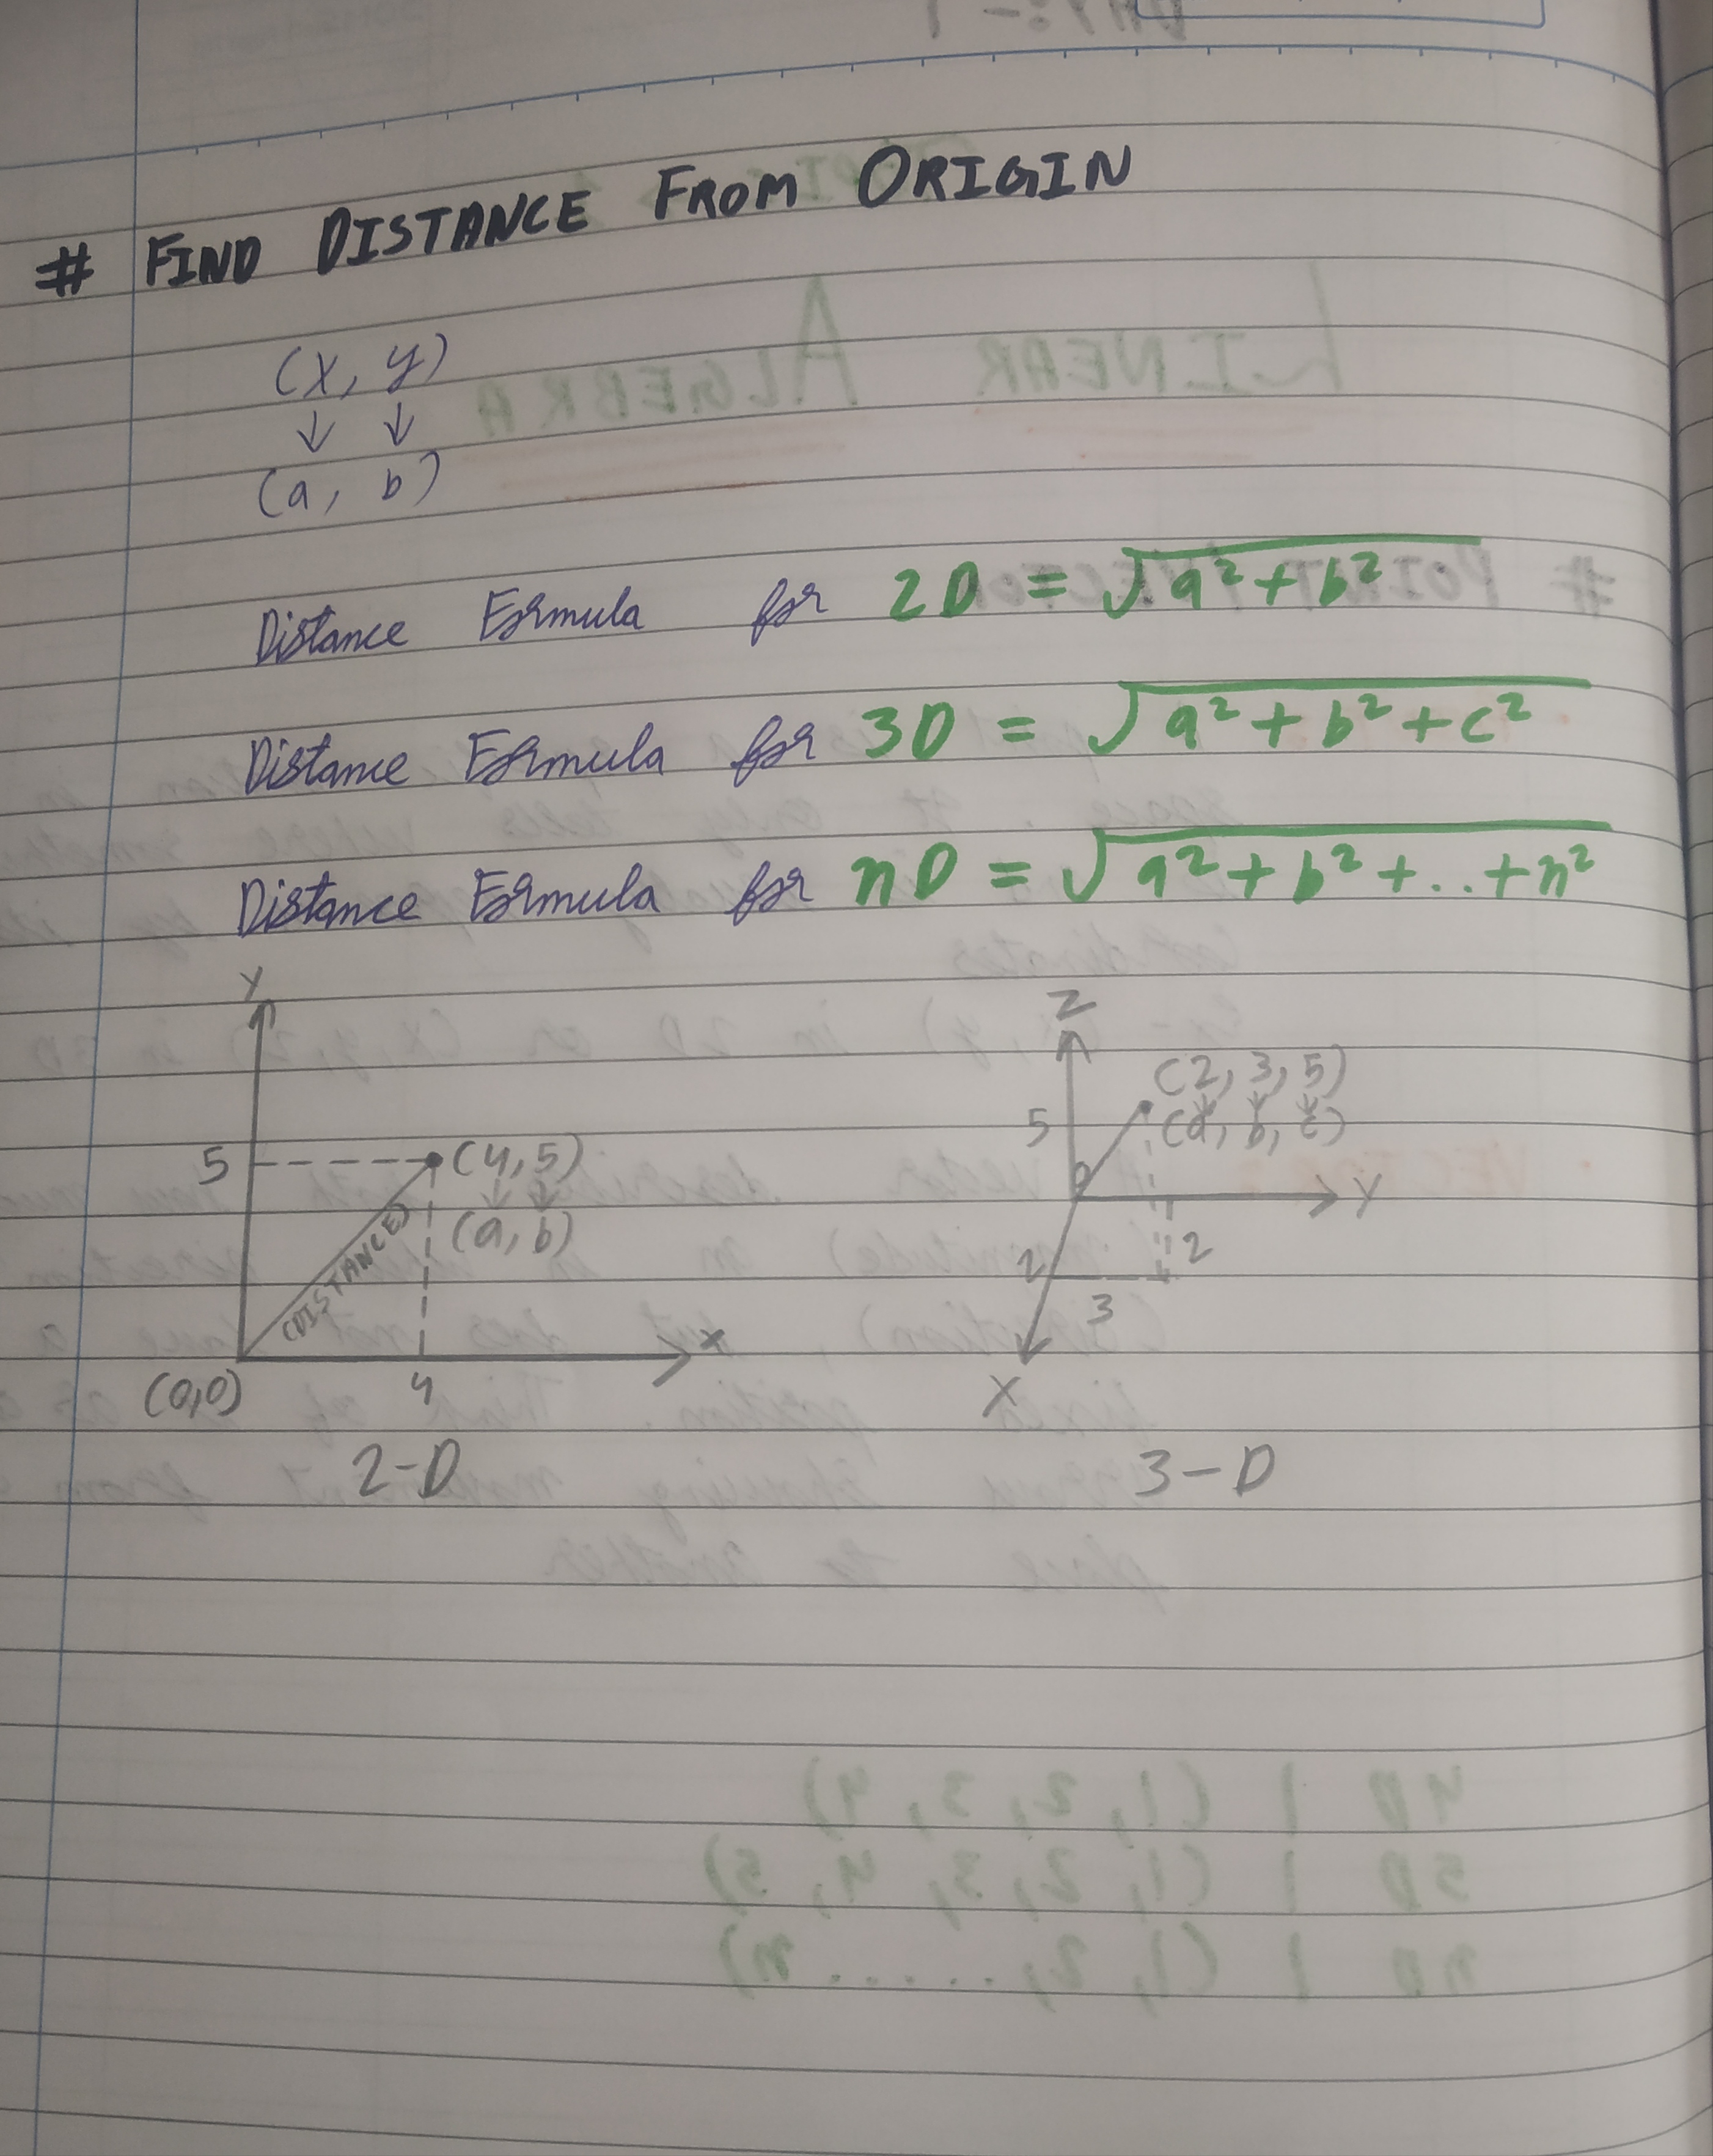 # FIND DISTANCE FROM ORIGIN
(x, y)
↓ ↓
(a, b)
Distance Formula for 2D = √a² + b²
Distance Formula for 3D = √a² + b² + c²
Distance Formula for nD = √a² + b² + .. + n²
Y
5
(4,5)
↓ ↓
(a, b)
(DISTANCE)
X
(0,0)
4
2-D
Z
(2, 3, 5)
↓ ↓ ↓
(a, b, c)
5
Y
2
2
3
X
3-D